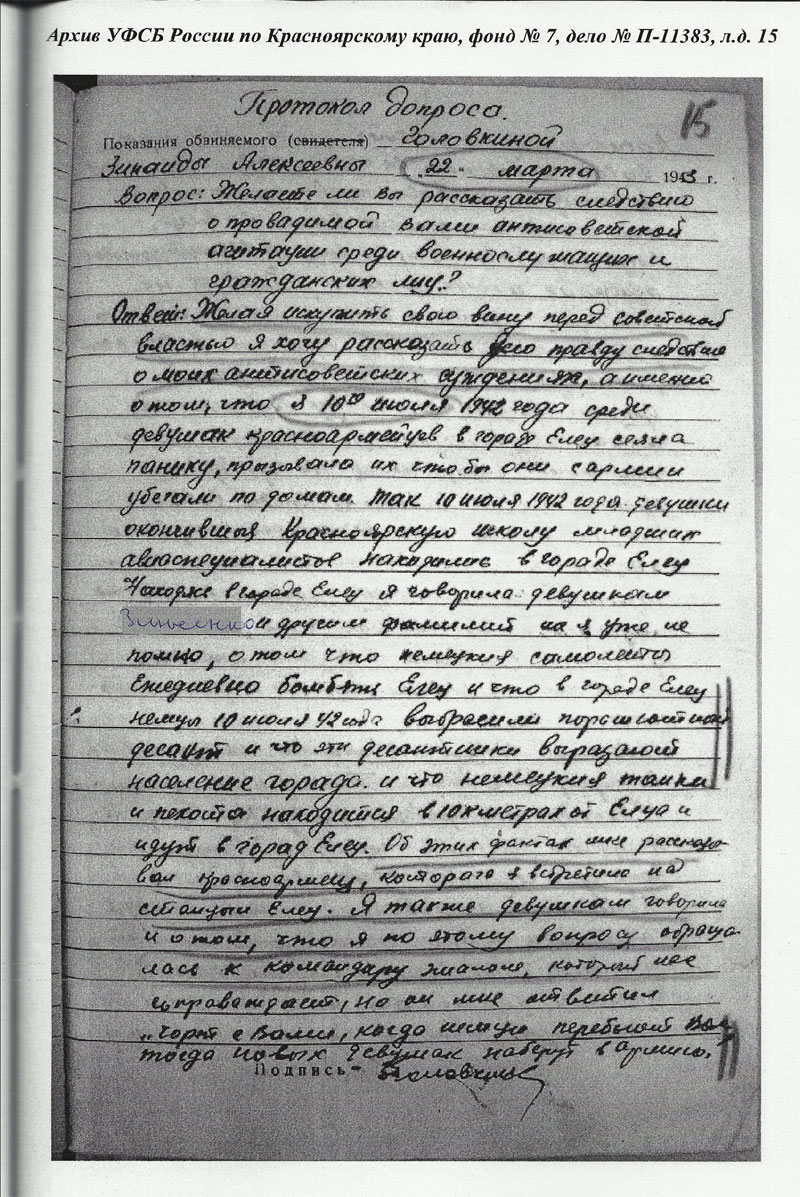 Архив УФСБ России по Красноярскому краю, фонд № 7, дело № П-11383, л.д. 15
Протокол допроса.
15
Показания обвиняемого (свидетеля) Головкиной
Зинаиды Алексеевны „22" марта 1943 г.
Вопрос: Желаете ли вы рассказать следствию
о провадимой Вами антисоветской
агитации среди военнослужащих и
гражданских лиц?
Ответ: Желая искупить свою вину перед советской
властью я хочу рассказать всю правду следствию
о моих антисоветских суждениях, а именно
о том, что я 10го июля 1942 года среди
девушак красноармейцев в городе Елец сеяла
панику, призывала их что бы они с армии
убегали по домам. Так 10 июля 1942 года девушки
окончившия Красноярскую школу младших
авиаспециалистов находились в городе Елец
Находясь в городе Елец я говорила девушкам
и другим фамилий их я уже не
помню, о том что немецкия самолеты
Ежедневно бомбят Елец и что в городе Елец
немцы 10 июля 42 года выбрасили парашютный
десант и что эти десантники вырезают
население города. и что немецкия танки
и пехота находится в 10 километрах от Ельца и
идут в город Елец. Об этих фактах мне рассказы-
вал красноармеец, котораго я встретила на
станции Елец. Я также девушкам говорила
и о том, что я по этому вопросу обраща-
лась к командиру эшалона, который нас
соправаждает, но он мне ответил
„чорт с Вами, когда немцы перебьют Вас
тогда новых девушак наберут в армию.
Подпись - Головкина